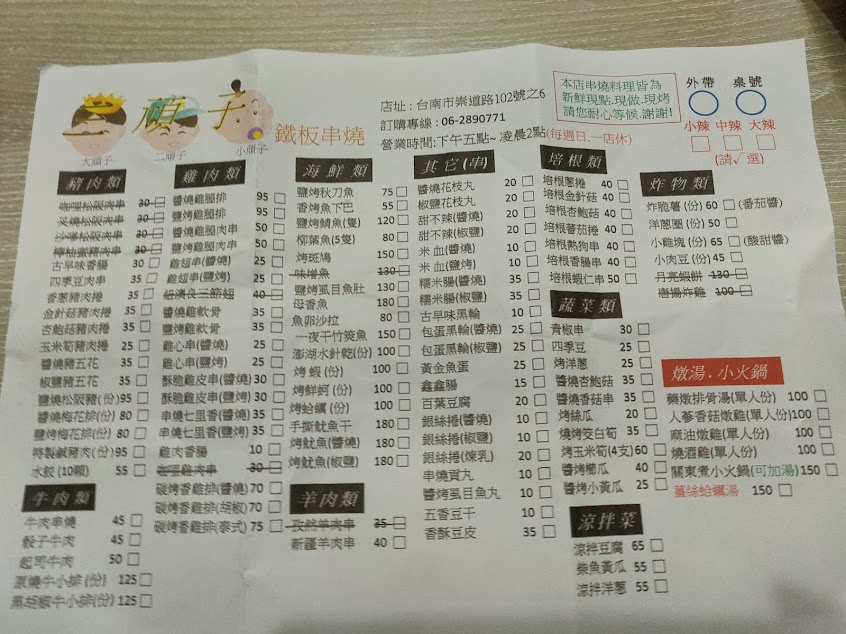 二頑子
大頑子 二頑子 小頑子
鐵板串燒
店址：台南市崇道路102號之6
訂購專線：06-2890771
營業時間:下午五點~凌晨2點(每週日.一店休)
本店串燒料理皆為
新鮮現點.現做.現烤
請您耐心等候.謝謝!
外帶 桌號
小辣 中辣 大辣
(請√選)
豬肉類
咖哩松阪肉串 30
叉燒松阪肉串 30
沙嗲松阪肉串 30
檸檬蜜豬肉串 30
古早味香腸 30
四季豆肉串 35
香蔥豬肉捲 35
金針菇豬肉捲 35
杏鮑菇豬肉捲 35
玉米筍豬肉捲 25
醬燒豬五花 35
椒鹽豬五花 35
鹽燒松阪豬(份) 95
醬燒梅花排(份) 80
鹽烤梅花排(份) 80
特製鹹豬肉(份) 95
水餃(10顆) 55
牛肉類
牛肉串燒 45
骰子牛肉 45
起司牛肉 50
原燒牛小排(份) 125
黑胡椒牛小排(份) 125
雞肉類
醬燒雞腿排 95
鹽烤雞腿排 95
醬燒雞腿肉串 50
鹽烤雞腿肉串 50
雞翅串(醬燒) 25
雞翅串(鹽烤) 25
紐澳良三節翅 40
醬燒雞軟骨 35
鹽烤雞軟骨 35
雞心串(醬燒) 25
雞心串(鹽烤) 25
酥脆雞皮串(醬燒) 30
酥脆雞皮串(鹽烤) 30
串燒七里香(醬燒) 35
串燒七里香(鹽烤) 35
雞肉香腸 10
咖哩雞肉串 30
碳烤香雞排(醬燒) 70
碳烤香雞排(胡椒) 70
碳烤香雞排(泰式) 75
海鮮類
鹽烤秋刀魚 75
香烤魚下巴 55
鹽烤鯖魚(隻) 120
柳葉魚(5隻) 80
烤斑鳩 150
味增魚 130
鹽烤虱目魚肚 130
母香魚 180
魚卵沙拉 80
一夜干竹筴魚 150
澎湖水針乾(份) 100
烤蝦(份) 100
烤鮮蚵(份) 100
烤蛤蠣(份) 100
手撕魷魚干 180
烤魷魚(醬燒) 180
烤魷魚(椒鹽) 180
羊肉類
孜然羊肉串 35
新疆羊肉串 40
其它(串)
醬燒花枝丸 20
椒鹽花枝丸 20
甜不辣(醬燒) 20
甜不辣(椒鹽) 20
米血(醬燒) 10
米血(鹽烤) 10
糯米腸(醬燒) 35
糯米腸(椒鹽) 35
古早味黑輪 10
包蛋黑輪(醬燒) 25
包蛋黑輪(椒鹽) 25
黃金魚蛋 25
鑫鑫腸 15
百葉豆腐 20
銀絲捲(醬燒) 10
銀絲捲(椒鹽) 10
銀絲捲(煉乳) 20
串燒貢丸 10
醬烤虱目魚丸 10
五香豆干 10
香酥豆皮 35
培根類
培根蔥捲 40
培根金針菇 40
培根杏鮑菇 40
培根蕃茄捲 40
培根熱狗串 40
培根香腸串 40
培根蝦仁串 50
蔬菜類
青椒串 30
四季豆 25
烤洋蔥 25
醬燒杏鮑菇 35
醬燒香菇串 35
烤絲瓜 20
燒烤茭白筍 35
烤玉米筍(4支) 60
醬烤櫛瓜 40
醬烤小黃瓜 25
涼拌菜
涼拌豆腐 65
柴魚黃瓜 55
涼拌洋蔥 55
炸物類
炸脆薯(份) 60 (番茄醬)
洋蔥圈(份) 50
小雞塊(份) 65 (酸甜醬)
小肉豆(份) 45
月亮蝦餅 130
唐揚炸雞 100
燉湯.小火鍋
藥燉排骨湯(單人份) 100
人蔘香菇燉雞(單人份) 100
麻油燉雞(單人份) 100
燒酒雞(單人份) 100
關東煮小火鍋(可加湯) 150
薑絲蛤蠣湯 150